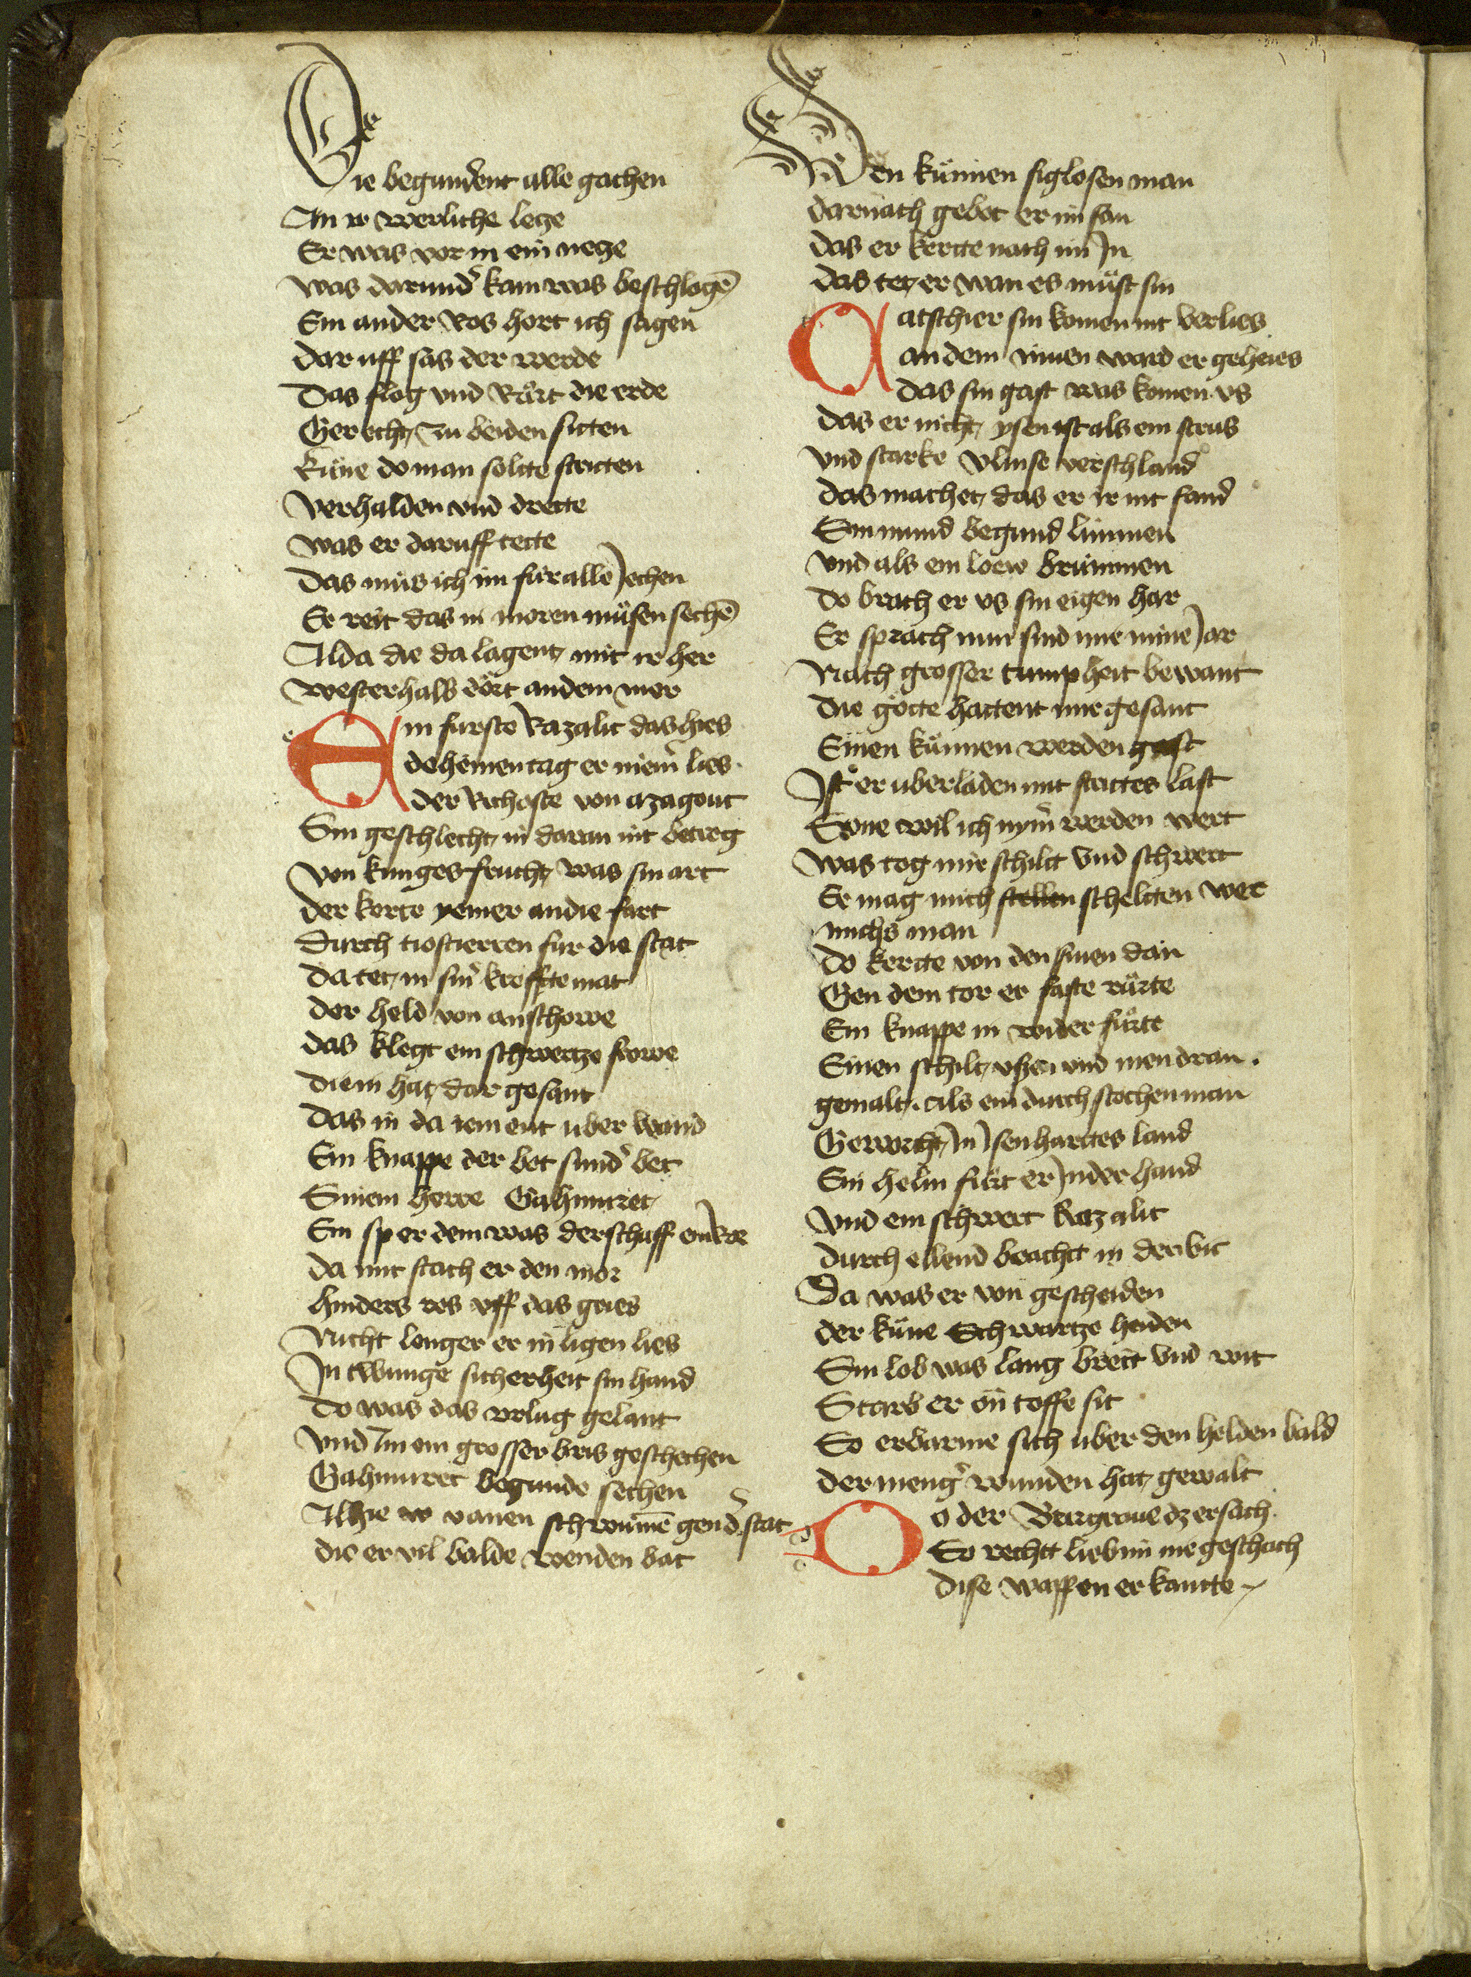 Die begundent alle gachen
An ir werliche leze
Er was vor in ein neze
was darund' kam was beschlagē
Ein ander Ros hort ich sagen
Dar uff sas der werde
Das flog vnd Růrt die erde
Gerecht zu beiden sitten
Kůne do man solte stritten
verhalden vnd drette
was er daruff tette
Das můs ich im für alle Jechen
Er reit das in moren můsen sechē
Alda die da lagent mit ir her
westerhalb dört an dem mer
Ein fürste Razalic das hies
deheinen tag er niem' lies
der Richoste von azagout
Sin geschlecht in daran nit betrog
von kunges frucht was sin art
der kerte yemer an die fart
durch tiostierren fur die stat
da tet in sin' kreffte mat
der held von anschowe
das klegt ein schwertze frowe
die in hat dar gesant
das in da iement uber wand
Ein knappe der bot sund' bet
Sinem herre Gahmuret
Ein sper dem was der schafft ein Roe
da mit stach er den mor
hinders ros vff das gries
Nicht lenger er in ligen lies
In twunge sicherheit sin hand
do was das vrlug gelant
vnd Im ein grosser bris geschechen
Gahmuret begunde sechen
Alhie w vanen schwumē gen d' stat
die er vil balde wenden bat
Den künnen siglosen man
darnach gebot er im san
das er kertte nach im In
das tet er wan es můst sin
Gatschier sin komen nit verlies
an dem Innen ward er geheies
das sin gast was komen vs
das er nicht ysen ist als ein strus
vnd starke vlinse verschland
das machet das er ir nit fand
Sin mund begund limmen
vnd als ein loew brummen
do brach er vs sin eigen har
Er sprach nun sind mir mine Jar
Nach grosser tumpheit bewant
die götte hattent mir gesant
Einen künnen werden gast
Ist er uberladen mit strittes last
Sone wil ich nym' werden wert
was tog mir schilt vnd schwert
Er mag mich stellen schelten wer
michs man
do kertte von den sinen dan
Gen dem tor er faste rürte
Ein knappe in wider fürte
Einen schilt vssen vnd inen dran.
gemalt. als ein durchstochen man
Geworcht In Isenharttes land
Ein helm fürt er In der hand
vnd ein schwert Razalic
durch ellend bracht in der vit
Da was er von gescheiden
der küne Schwartze heiden
Sin lob was lang breit vnd wit
Starb er on toffe sit
So erbarme sich uber den helden bald
der meng' wunden hat gewalt
Do der Burgraue dz ersach
So rechtt lieb im nie geschach
dise wappen er kantte